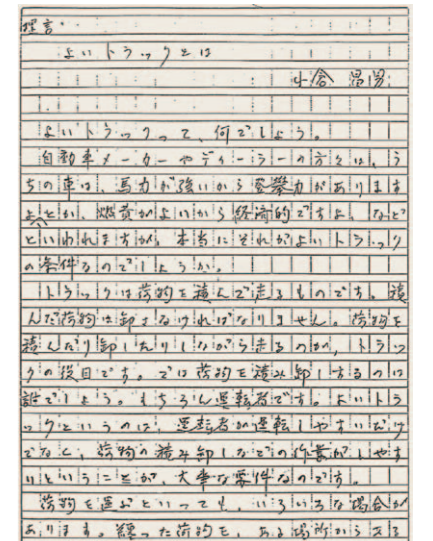 提言
よいトラックとは
小倉 昌男
よいトラックって、何でしょう。
自動車メーカーやディーラーの方々は、う
ちの車は、馬力が強いから登攀力があります
よとか、燃費がよいから経済的ですよ、などと
といわれますが、本当にそれがよいトラック
の条件なのでしょうか。
トラックは荷物を積んで走るものです。積
んだ荷物は卸さなければなりません。荷物を
積んだり卸したりしながら走るのが、トラッ
クの役目です。では荷物を積み卸しするのは
誰でしょう。もちろん運転者です。よいトラ
ックというのは、運転者が運転しやすいだけ
でなく、荷物の積み卸しなどの作業がしやす
いということが、大事な要件なのです。
荷物を運ぶといっても、いろいろな場合が
あります。纏った荷物を、ある場所からある